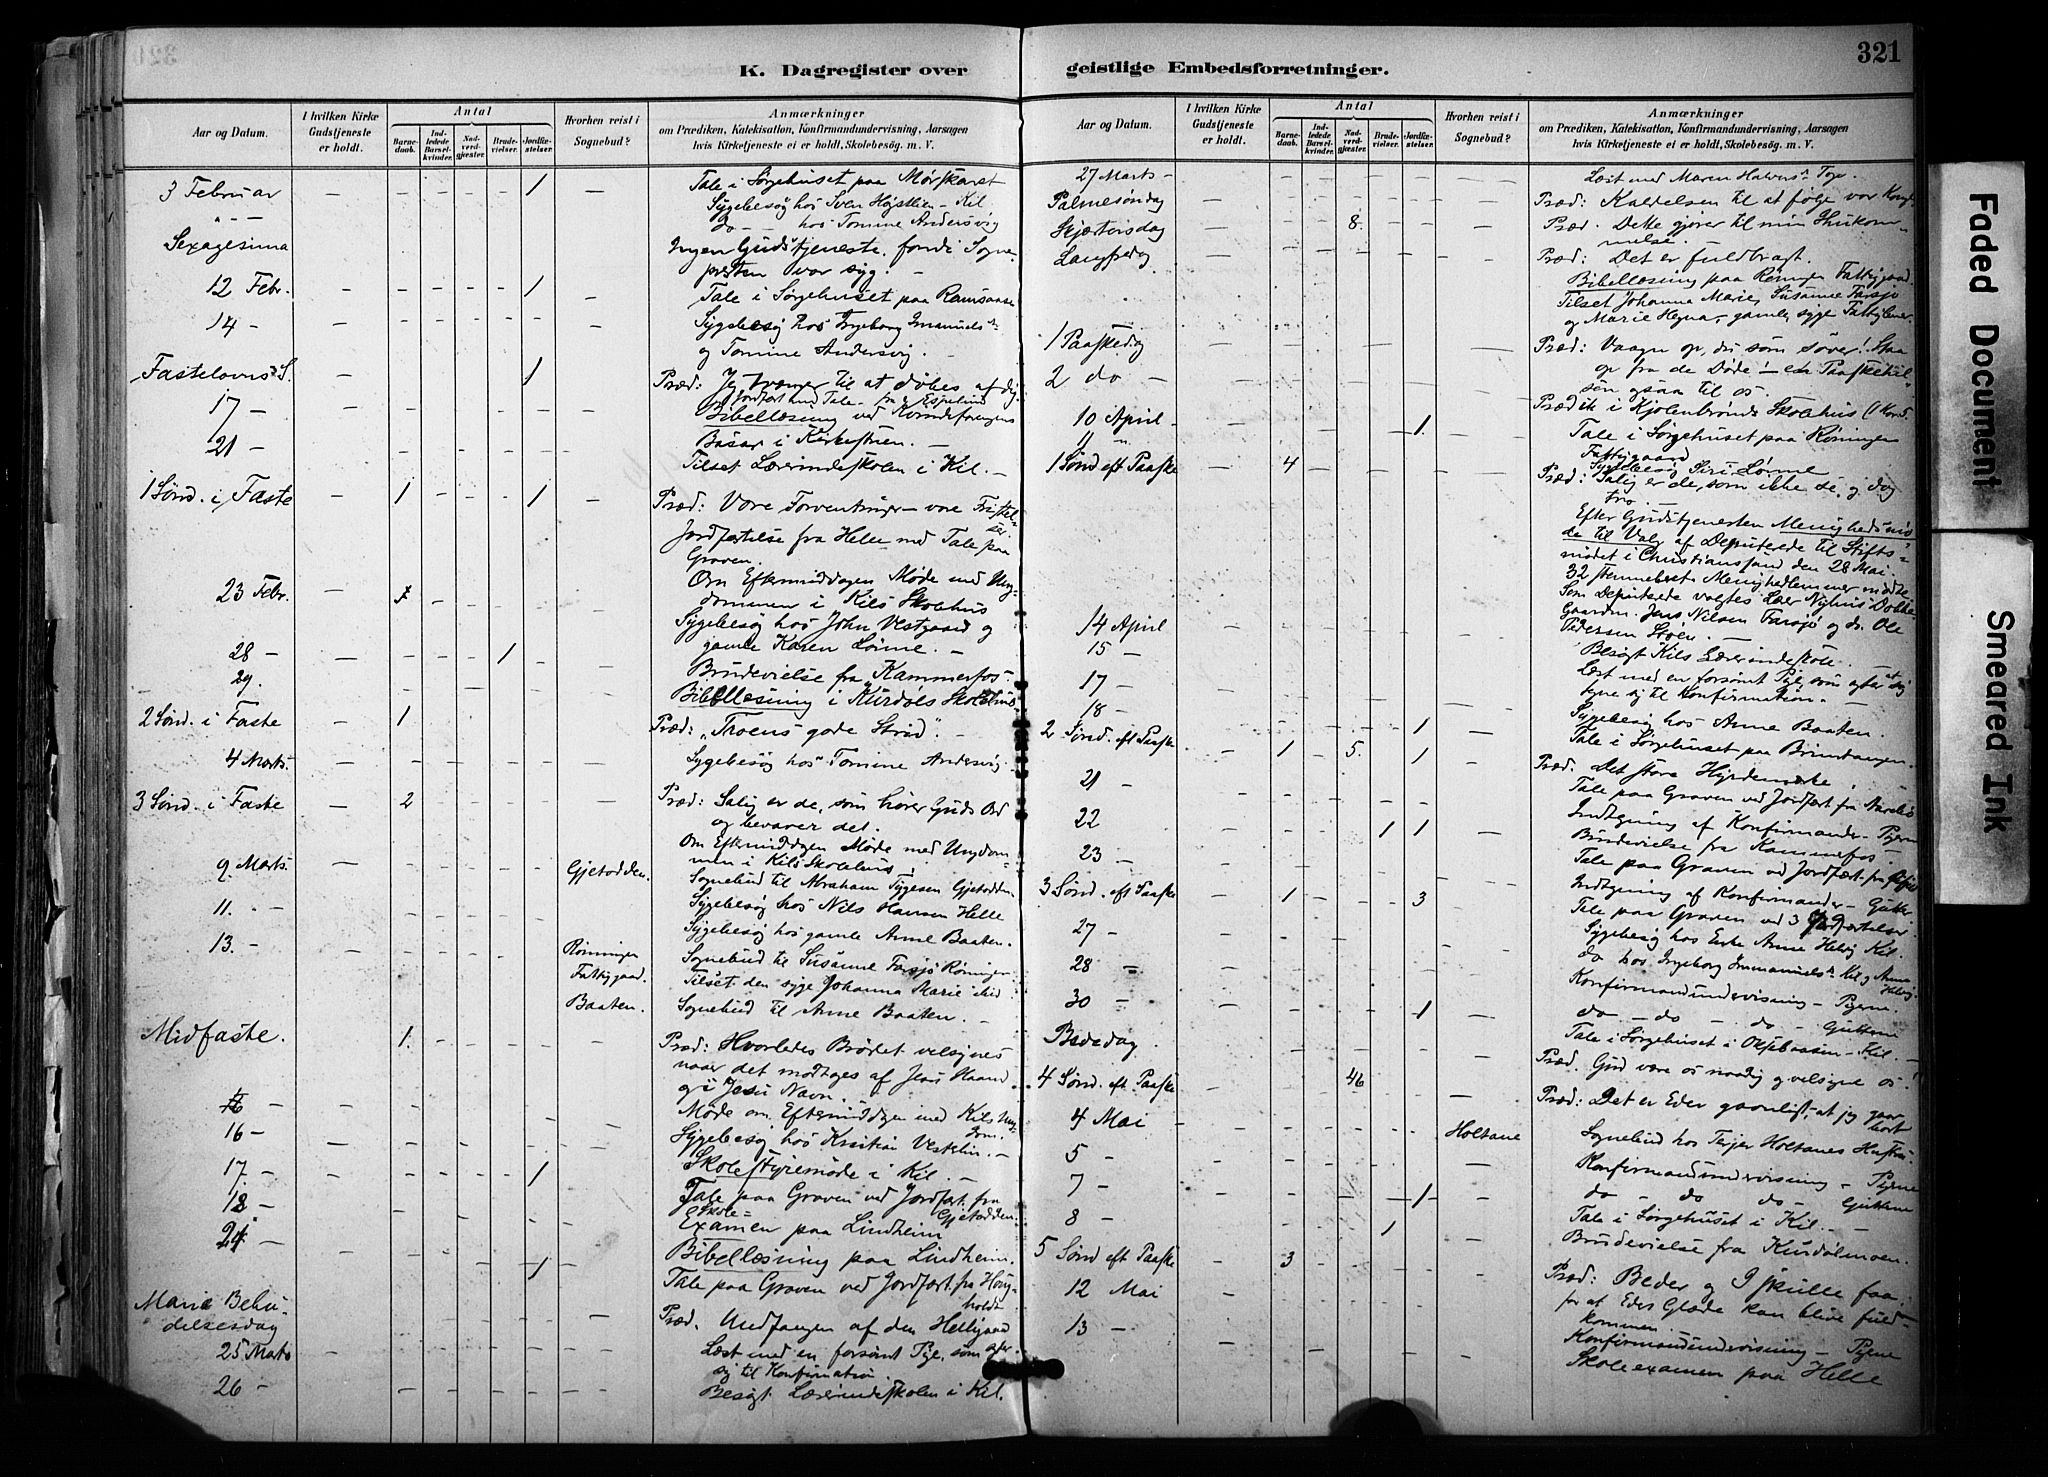 321
K. Dagregister over geistlige Embedsforretninger.
Aar og Datum.
I hvilken Kirke Gudstjeneste er holdt.
Antal
Barnedaab.
Indledede Barselkvinder.
Nadverdgjæster.
Brudevielser.
Jordfæstelser.
Hvorhen reist i Sognebud?
Anmærkninger
om Prædiken, Katekisation, Konfirmandundervisning, Aarsagen
hvis Kirketjeneste ei er holdt, Skolebesög. m. V.
3 Februar – 1 – Tale i Sørgehuset paa Mørskaret
Sygebesøg hos Sven Høgstlien - Kil
Do – hos Tomine Andersvig
Sexagesima Ingen Gudstjeneste, fordi Sogne-
presten var syg. –
12 Febr. – – – – – 1 – Tale i Sørgehuset paa Ramsaase
14 – – – Sygebesøg hos Ingeborg Imanuels
og Tomine Andersvig. –
Fastelavns S. – 1 Præd: Jeg trænger til at døbes af dig.
17 – – Jordfæst med Tale fra Espelund
Bibellæsning ved Kvindeforenings
Basar i Kirkestuen. –
21 – Tilset Lærerindeskolen i Kil. –
1 Sønd. i Faste – 1 – – – 1 – Præd: Vore Forventninger – vore Fristel-
ser.
Jordfæstelse fra Helle med Tale paa
Graven.
Om Eftermiddagen Møde med Ung-
dommen i Kils Skolehus
23 Febr. – Sygebesøg hos John Vestgaard og
gamle Karen Lønne. –
28 – – – – – 1 – Brudevielse fra Kammerfos –
29. – – Bibellæsning i Kurdøls Skolehus
2 Sønd. i Faste – 1 Præd: „Troens gode Strid". –
4 Marts. – – – Sygebesøg hos Tomine Andersvig.
3 Sønd. i Faste – 2 Præd: Salig er de, som hører Guds Ord
og bevarer det.
Om Eftermiddagen Møde med Ungdom-
men i Kils Skolehus.
9 Marts. – Gjetodden. Sognebud til Abraham Tygesen Gjetodden
11. – – Sygebesøg hos Nils Hansen Helle
13. – – Sygebesøg hos gamle Anne Baaten.
Rønningen Sognebud til Susanne Farsjø Røningen
Fattiggaard. Tilset den syge Johanna Marie ibid
Baaten. Sognebud til Anne Baaten. –
Midfaste. 1. Præd: Hvorledes Brødet velsignes
naar det modtages af Jesu Haand
og i Jesu Navn.
Møde om Eftermiddagen med Kils Ung-
dom.
16 – – Sygebesøg hos Kristian Vestlien. –
16 – – Skolestyremøde i Kil. –
17. – – 1 – Tale paa Graven ved Jordfæst. fra
Gjetodden.
18 – – Skole-
Examen paa Lindheim
24 – – Bibellæsning paa Lindheim.
1 Tale paa Graven ved Jordfæst. fra Houg-
holdt
Maria Bebu-
delsesdag
Præd. Undfangen af den Helligaand
25 Marts – Læst med en forsømt Pige, som agter
sig til Konfirmation.
26 – – Besøgt Lærerindeskolen i Kil.
Aar og Datum.
I hvilken Kirke Gudstjeneste er holdt.
Antal
Barnedaab.
Indledede Barselkvinder.
Nadverdgjæster.
Brudevielser.
Jordfæstelser.
Hvorhen reist i Sognebud?
Anmærkninger
om Prædiken, Katekisation, Konfirmandundervisning, Aarsagen
hvis Kirketjeneste ei er holdt, Skolebesög. m. V.
27 Marts – – Læst med Maren Halvors
Palmesøndag – Præd: Kaldelsen til at følge vor
Skjærtorsdag – 8. Præd. Dette gjører til min Ihukom-
melse.
Langfredag – Præd: Det er fuldbragt.
Bibellæsning paa Røningen Fattiggaard
Tilset Johanna Marie, Susanne Farsjø
og Marie Hegna, gamle, syge Fattiglemer.
1 Paaskedag – Præd: Vaagn op, du som sover! Staa
op fra de Døde! – en Paaskehil-
sen ogsaa til os.
2 do – – Prædik i Kjølenbrønds Skolehus
10 April – 1. – Tale i Sørgehuset paa Røningen
Fattiggaard
11 – Sygebesøg Siri Lønne
1 Sønd eft Paaske – 4 Præd: Salig er de, som ikke se, og dog
tro.
Efter Gudstjenesten Menighedsmø-
de til Valg af Deputerede til Stifts-
mødet i Christianssand den 28 Mai.
32 stemmeberet. Menighedslemmer mødte.
Som Deputerede valgtes Lær Nyhus Dobbe
Gaardm. Jens Nilsen Farsjø og do. Ole
Pedersen Støen. –
14 April Besøgt Kils Lærerindeskole. –
15 – – Læst med en forsømt Pige som agter at
tegne sig til Konfirmation. –
17 – – Sygebesøg hos Anne Baaten.
18 – 1 – Tale i Sørgehuset paa Brimtangen.
2 Sønd. eft Paaske – 1 – 5. – 1 – Præd. Det store Hyrdemærke.
Tale paa Graven ved Jordfæst fra
21 – Indtegning af Konfirmander – Pigerne
22 1 1 – Brudevielse fra Kammerfos.
Tale paa Graven ved Jordfæst. fra
23 – Indtegning af Konfirmander – Gutter
3 Sønd. eft Paaske – 1 – – – 3 – Tale paa Graven ved 3 Jordfæstelser.
27 – – Sygebesøg hos Enke Anne Helvig Kil.
28 – – do hos Ingeborg Immanuels Kil og Anne
Helvig.
30 – – Konfirmandundervisning – Pigerne.
do – do – do – Guttene
1 – Tale i Sørgehuset i Oksebaasen – Kil. –
Bededag – Præd. Gud være os naadig og velsigne os!
4 Sønd. eft Paaske – 46 Præd: Det er Eder gavnligt, at jeg gaar
bort
4 Mai Holtane Sognebud hos Terjer Holtanes Hustru
5 – Konfirmandundervisning – Pigerne
7 – do – do do – Guttene
1 – Tale i Sørgehuset i Kil. –
8 – 1 Brudevielse fra Kurdølmoen.
5 Sønd eft Paaske – 3 Præd: Beder og I skulle faa,
for at Eders Glæde kan blive fuld-
kommen.
12 Mai – Konfirmandundervisning – Pigerne
13 – – Skoleexamen paa Helle
Faded Document
Smeared Ink